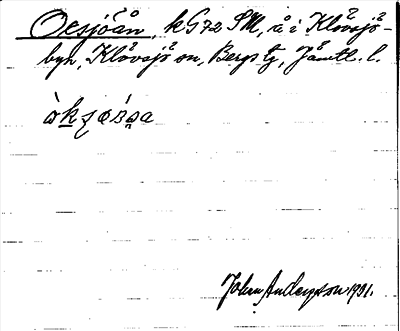 Oxsjöån, kG72 SM, å i Klövsjö-
byn, Klövsjö sn, Bergs tg, Jämtl. l.
Johan Anderzson 1931.